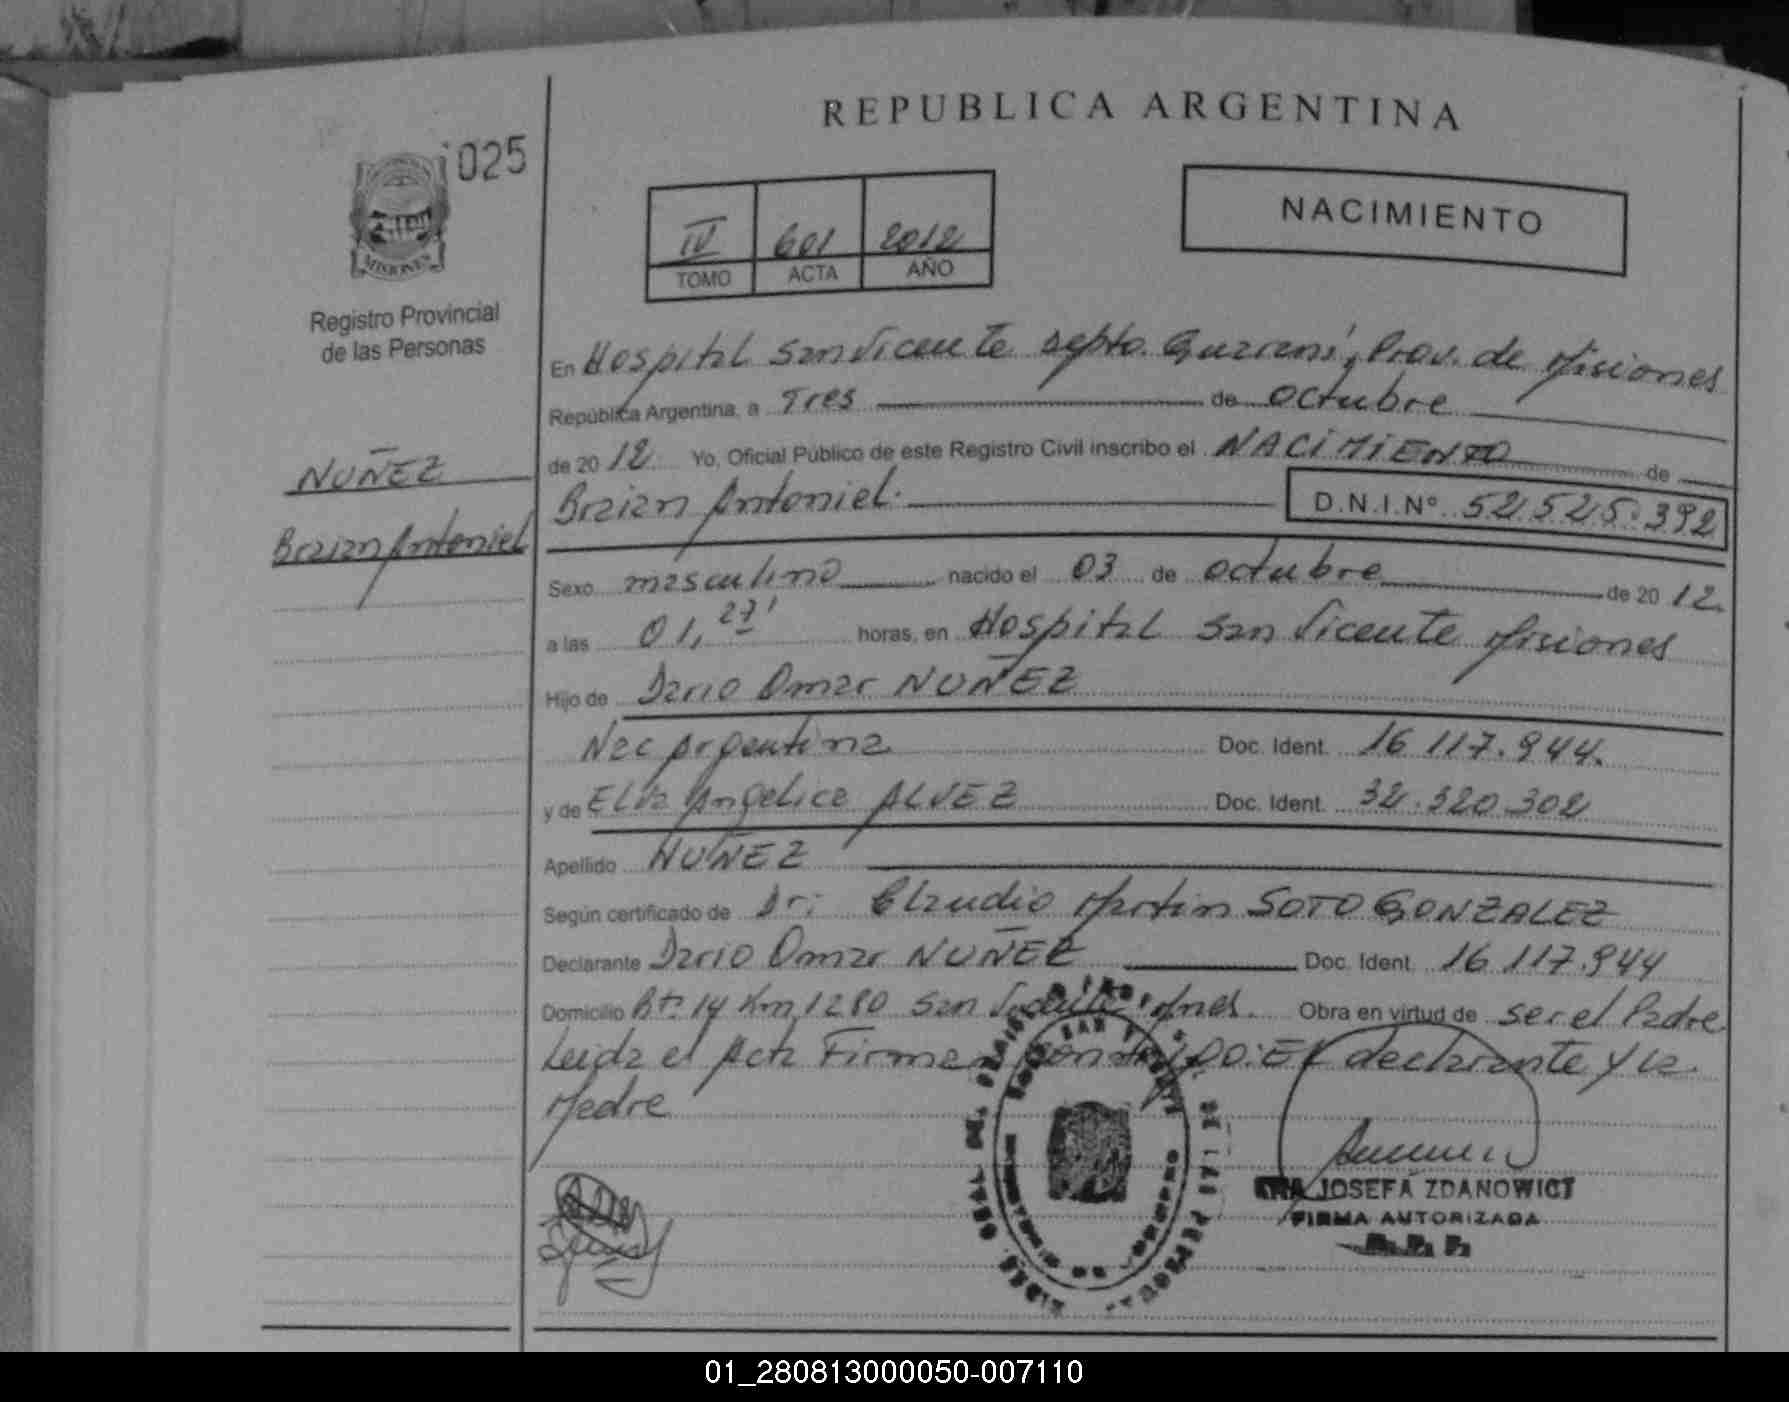 REPUBLICA ARGENTINA
025
MISIONES
Registro Provincial
de las Personas
IV 601 2012
TOMO ACTA AÑO
NACIMIENTO
NUÑEZ
Braian Antoniel
En Hospital San Vicente Depto. Guaraní, Prov. de Misiones
República Argentina, a Tres de octubre
de 2012 Yo, Oficial Público de este Registro Civil inscribo el NACIMIENTO de
Braian Antoniel. D.N.I.Nº 52.525.392
Sexo masculino nacido el 03 de octubre de 2012.
a las 01,27' horas, en Hospital San Vicente Misiones
Hijo de Dario Omar NUÑEZ
Nac Argentina Doc. Ident. 16.117.944.
y de Angelica ALVEZ Doc. Ident. 32.320.302
Apellido NUÑEZ
Según certificado de Dr: Claudio Martin SOTO GONZALEZ
Declarante Dario Omar NUÑEZ Doc. Ident. 16.117.944
Domicilio Rta 14 Km 1280 San Vicente Mnes. Obra en virtud de ser el Padre
Leida el Acta Firman conmigo: El declarante y la
Madre
JOSEFA ZDANOWICT
FIRMA AUTORIZADA
R. P. P.
01_280813000050-007110